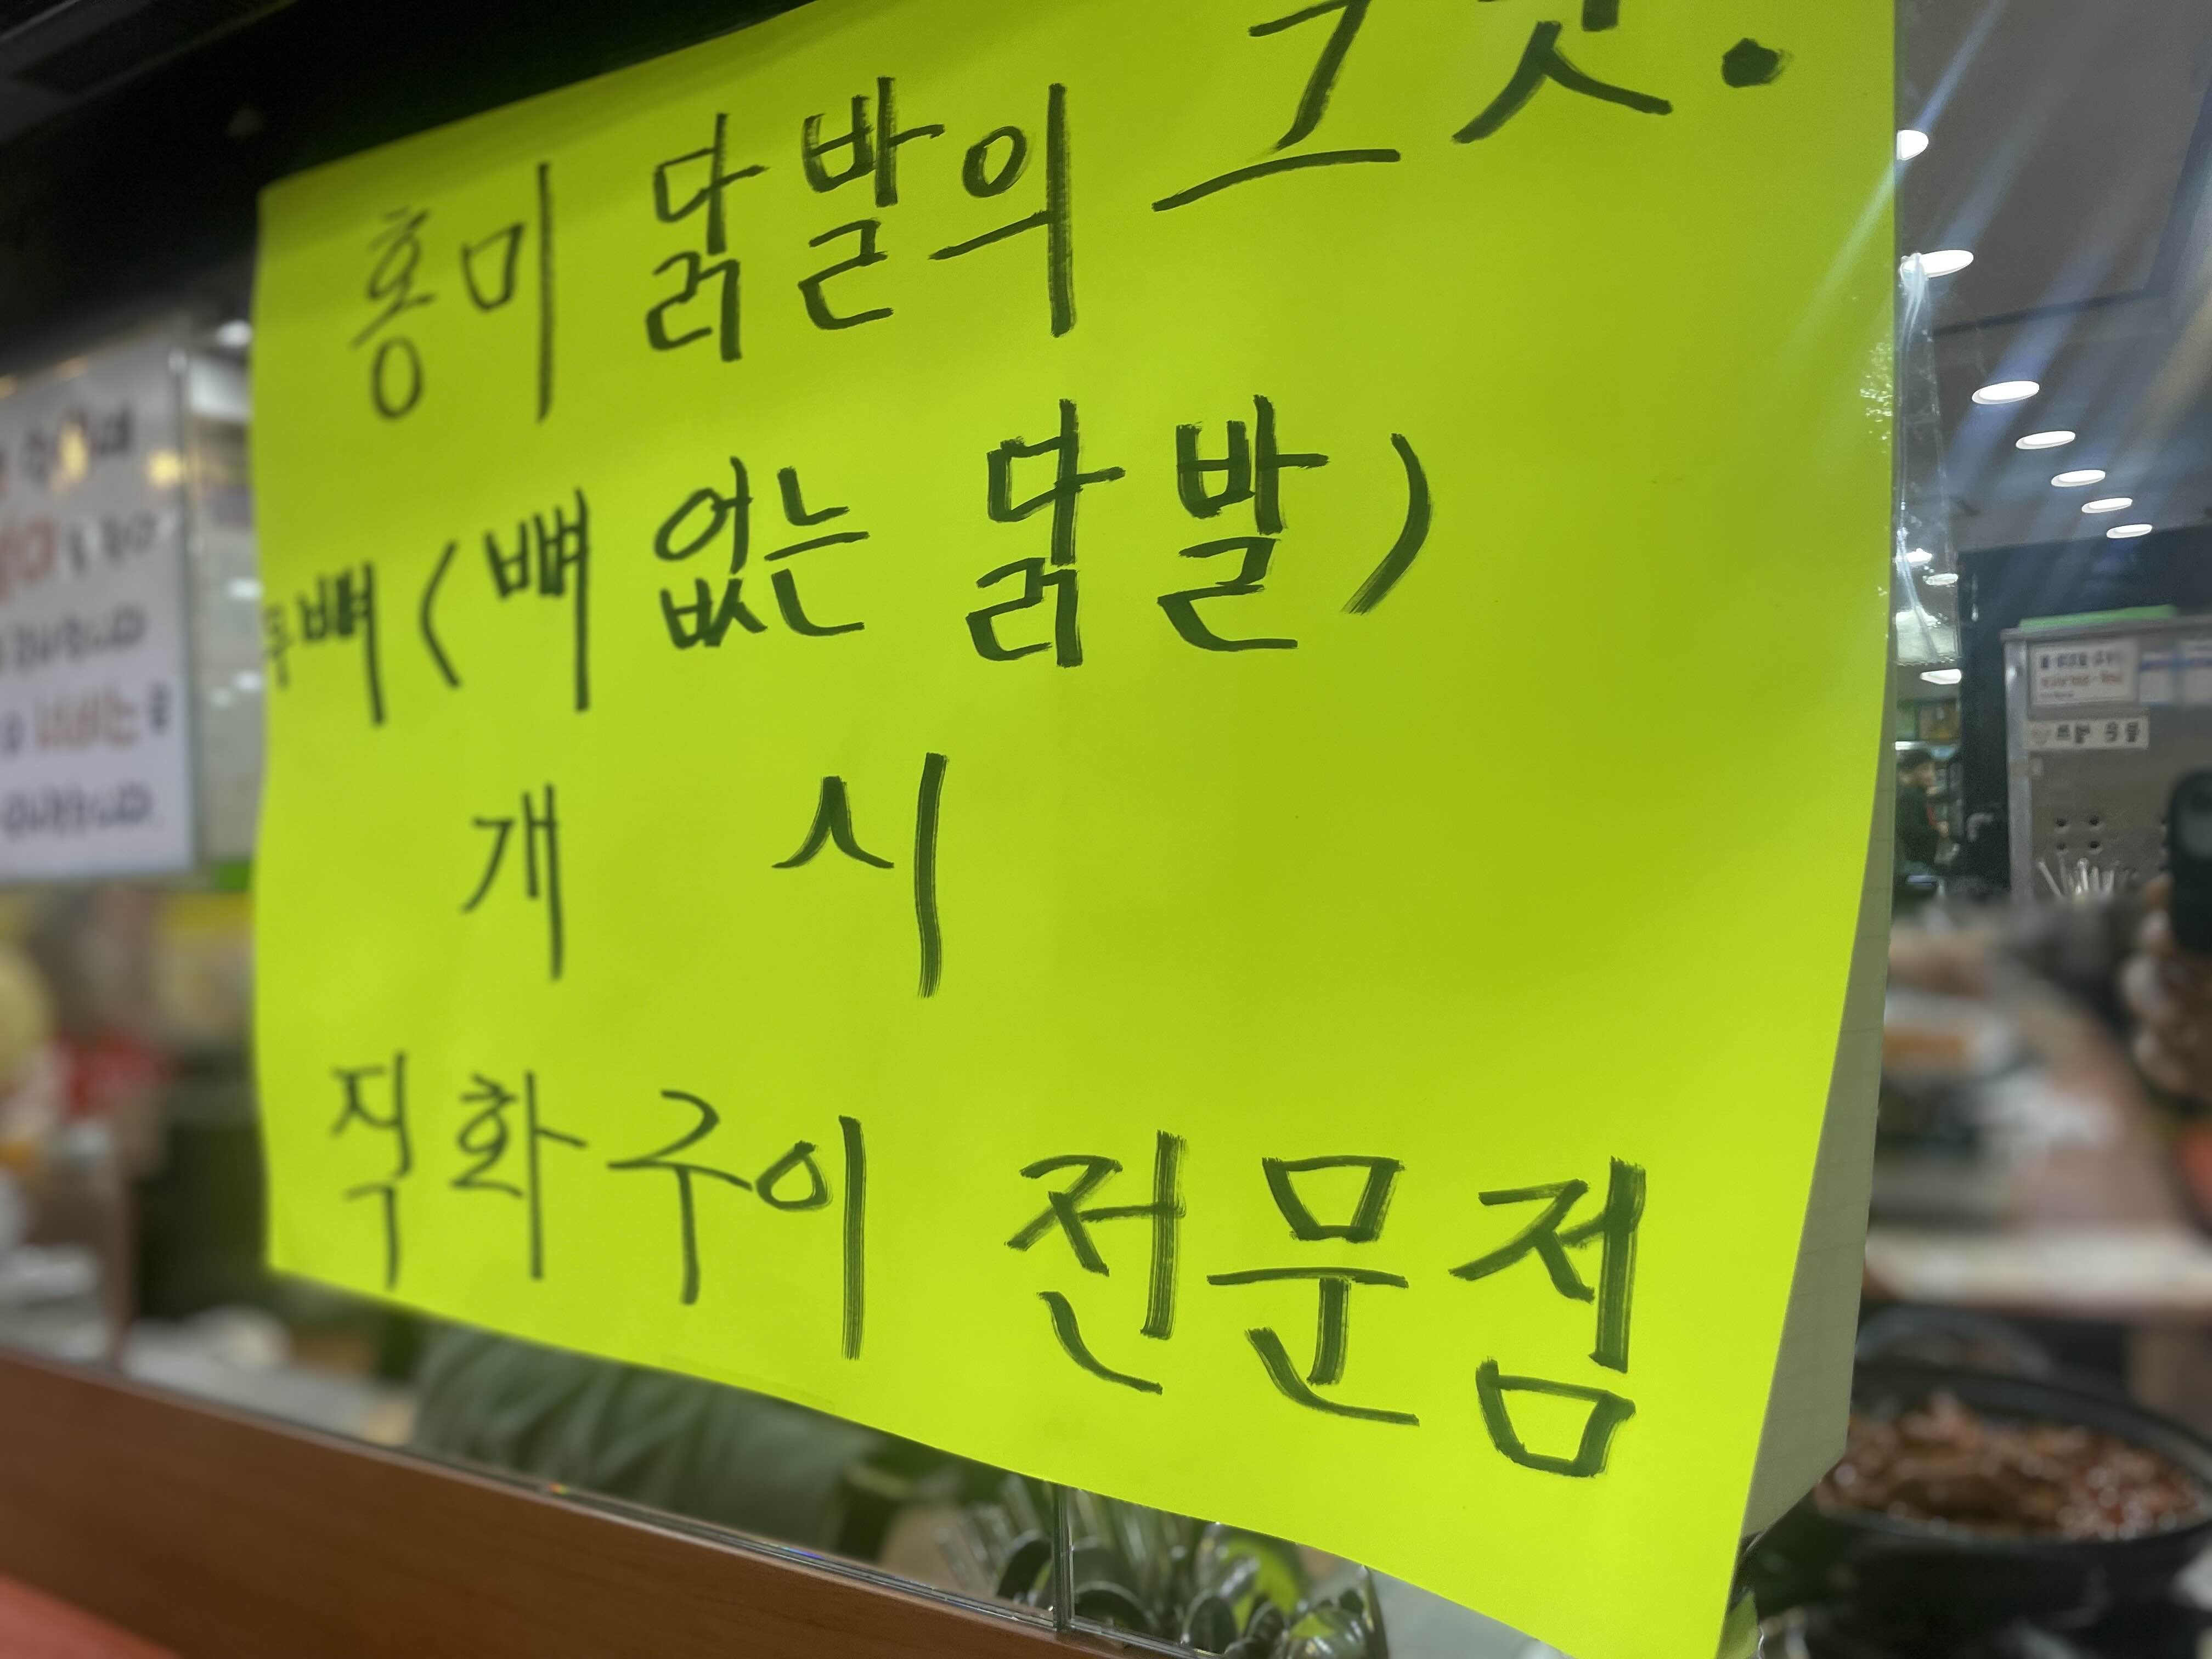 홍미 닭발의 그것.
무뼈(뼈 없는 닭발)
개 시
직화구이 전문점